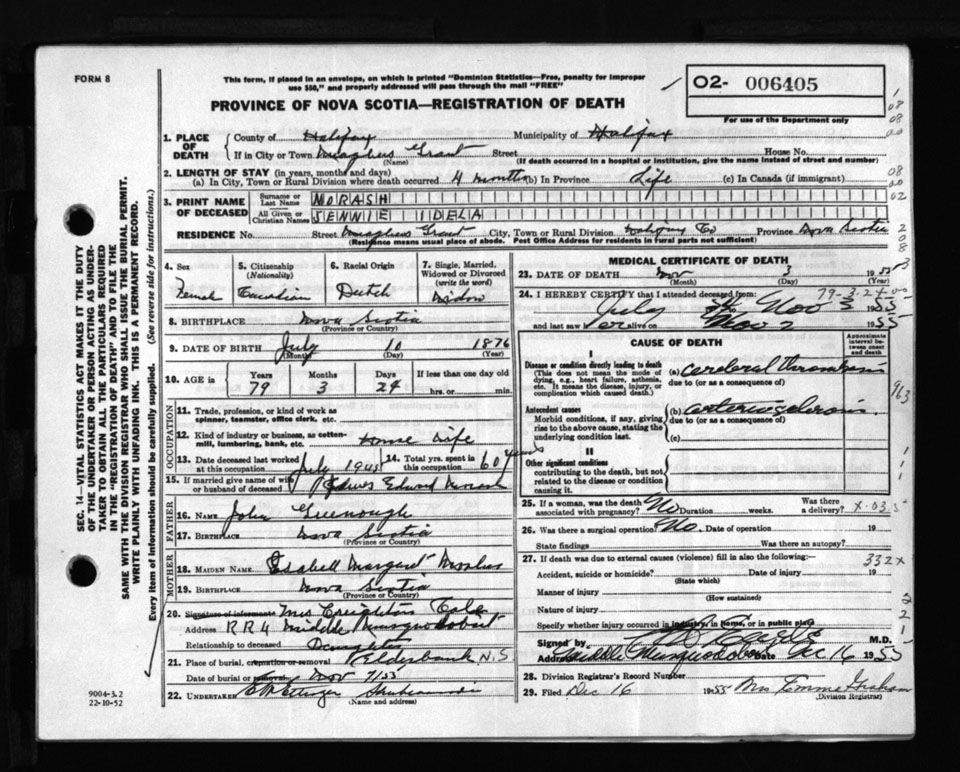 FORM 8
This form, if placed in an envelope, on which is printed "Dominion Statistics—Free, penalty for improper
use $50," and properly addressed will pass through the mail "FREE"
O2- 006405
For use of the Department only
PROVINCE OF NOVA SCOTIA—REGISTRATION OF DEATH
SEC. 14—VITAL STATISTICS ACT MAKES IT THE DUTY
OF THE UNDERTAKER OR PERSON ACTING AS UNDER-
TAKER TO OBTAIN ALL THE PARTICULARS REQUIRED
IN THE "REGISTRATION OF DEATH" AND TO FILE THE
SAME WITH THE DIVISION REGISTRAR WHO SHALL ISSUE THE BURIAL PERMIT.
WRITE PLAINLY WITH UNFADING INK. THIS IS A PERMANENT RECORD.
Every item of information should be carefully supplied. (See reverse side for instructions.)
1. PLACE OF DEATH County of Halifax Municipality of Halifax
If in City or Town Meaghers Grant Street House No.
(Name) (If death occurred in a hospital or institution, give the name instead of street and number)
2. LENGTH OF STAY (in years, months and days)
(a) In City, Town or Rural Division where death occurred 4 months (b) In Province Life (c) In Canada (if immigrant)
3. PRINT NAME OF DECEASED Surname or Last Name NORASH
All Given or Christian Names JENNIE IDELA
RESIDENCE No. Street Meaghers Grant City, Town or Rural Division Halifax Co Province Nova Scotia
(Residence means usual place of abode. Post Office Address for residents in rural parts not sufficient)
4. Sex 5. Citizenship (Nationality) 6. Racial Origin 7. Single, Married, Widowed or Divorced (write the word)
Female Canadian Dutch Widow
8. BIRTHPLACE Nova Scotia
(Province or Country)
9. DATE OF BIRTH July 10 1876
(Month) (Day) (Year)
10. AGE in Years Months Days If less than one day old
79 3 24 hrs. or min.
OCCUPATION
11. Trade, profession, or kind of work as
spinner, teamster, office clerk, etc.
12. Kind of industry or business, as cotten-
mill, lumbering, bank, etc. House Wife
13. Date deceased last worked
at this occupation July 1945 14. Total yrs. spent in
this occupation 60 years
15. If married give name of wife
or husband of deceased Edward
FATHER
16. NAME John Greenough
17. BIRTHPLACE Nova Scotia
(Province or Country)
MOTHER
18. MAIDEN NAME Isabell Margaret
19. BIRTHPLACE Nova Scotia
(Province or Country)
20. Signature of informant Mrs Creighton Cole
Address RR4 Middle Musquodoboit
Relationship to deceased Daughter
21. Place of burial, cremation or removal Elderbank, N.S
Date of burial or removal Nov 7/55
22. UNDERTAKER Ettinger Shubenacadie
(Name and address)
9004-3.2
22-10-52
MEDICAL CERTIFICATE OF DEATH
23. DATE OF DEATH Nov 3 1955
(Month) (Day) (Year)
24. I HEREBY CERTIFY that I attended deceased from:
July to Nov 3 1955
and last saw her alive on Nov 2 1955
CAUSE OF DEATH
Approximate interval between onset and death
I
Disease or condition directly leading to death
(This does not mean the mode of
dying, e.g., heart failure, asthenia,
etc. It means the disease, injury, or
complication which caused death.)
(a) Cerebral Thrombosis
due to (or as a consequence of)
Antecedent causes
Morbid conditions, if any, giving
rise to the above cause, stating the
underlying condition last.
(b) arteriosclerosis
due to (or as a consequence of)
(c)
II
Other significant conditions
contributing to the death, but not
related to the disease or condition
causing it.
25. If a woman, was the death
associated with pregnancy? No Duration weeks. Was there
a delivery?
26. Was there a surgical operation? No. Date of operation 19
State findings Was there an autopsy?
27. If death was due to external causes (violence) fill in also the following:—
Accident, suicide or homicide? Date of injury 19
(State which)
Manner of injury
(How sustained)
Nature of injury
Specify whether injury occurred in industry, in home, or in public place
Signed by M.D.
Address Middle Musquodoboit Date Dec 16 1955
28. Division Registrar's Record Number
29. Filed Dec 16 1955 Mrs Emma Graham
(Division Registrar)